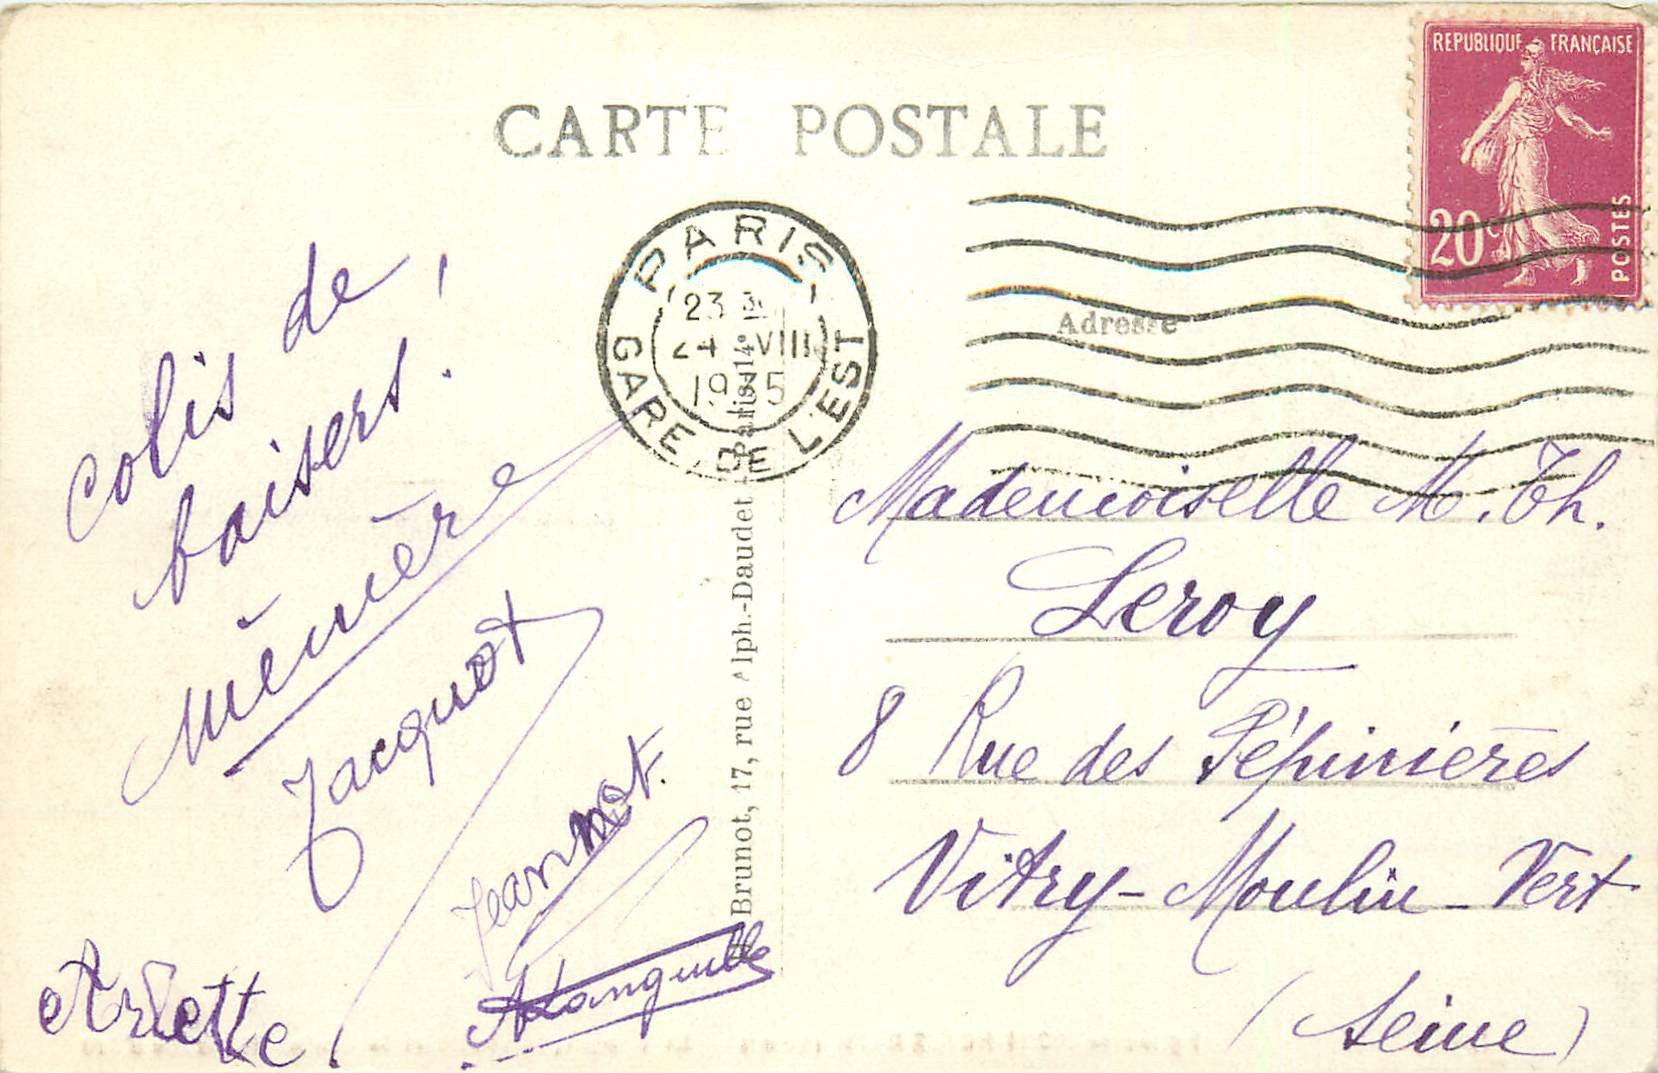 CARTE POSTALE
REPUBLIQUE FRANÇAISE
20c
POSTES
PARIS
GARE DE L'EST
23
24 VIII
1935
Adresse
colis de
baisers !
Mémère
Jacquot
Jeannot.
Arlette.
Brunot, 17, rue Alph.-Daudet - Paris-14e
Mademoiselle M. Th.
Leroy
8 Rue des Pépinières
Vitry - Moulin - Vert
(Seine)